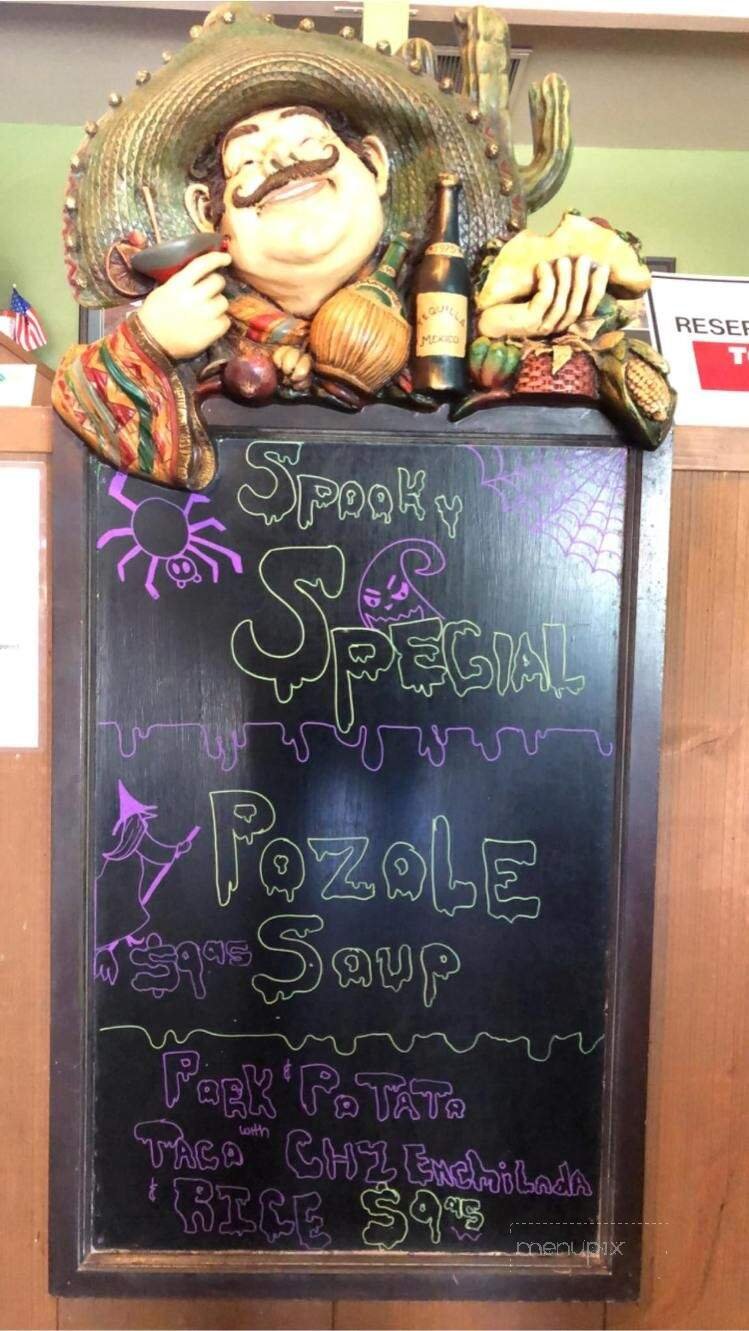 TEQUILLA
MEXICO
RESER
T
Spooky
SPECIAL
POZOLE
$9.95 Soup
PORK & POTATO
TACO with CHZ ENCHILADA
& RICE $9.95
menupix